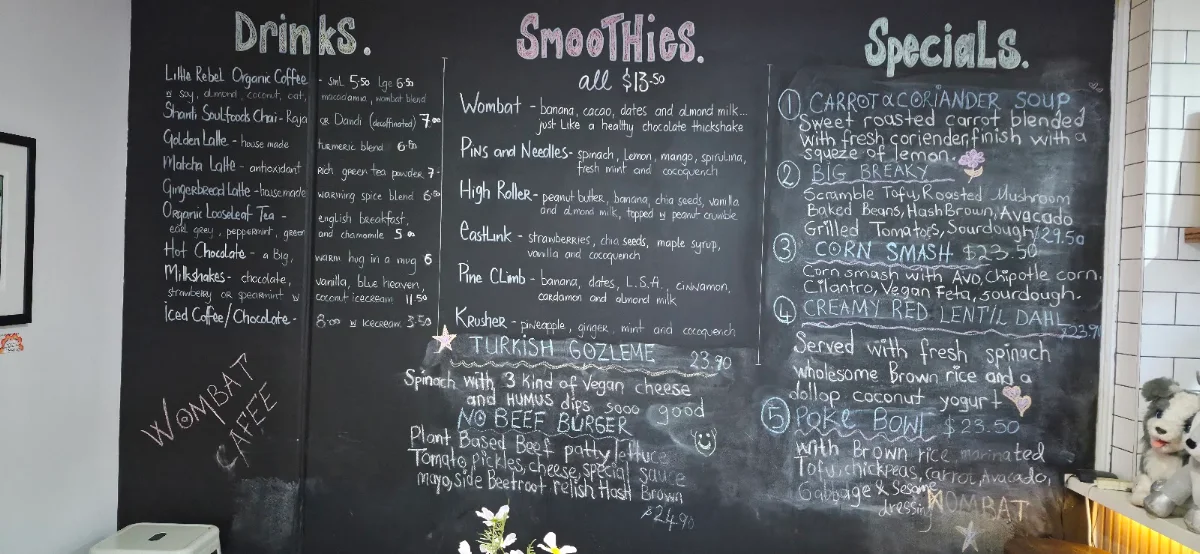 Drinks.
Little Rebel Organic Coffee - sml 5.50 Lge 6.50
w soy, almond, coconut, oat, macadamia, wombat blend
Shanti Soulfoods Chai - Raja or Dandi (decaffinated) 7.00
Golden Latte - house made turmeric blend 6.50
Matcha Latte - antioxidant rich green tea powder 7-
Gingerbread Latte - housemade warming spice blend 6.00
Organic Looseleaf Tea - english breakfast,
earl grey, peppermint, green and chamomile 5.00
Hot Chocolate - a Big, warm hug in a mug 6
Milkshakes - chocolate, vanilla, blue heaven,
strawberry or spearmint w coconut icecream 11.50
Iced Coffee/Chocolate - 8.00 w Icecream 3.50
WOMBAT
CAFEE
SMOOTHIES.
all $13.50
Wombat - banana, cacao, dates and almond milk...
just like a healthy chocolate thickshake
Pins and Needles - spinach, lemon, mango, spirulina,
fresh mint and cocoquench
High Roller - peanut butter, banana, chia seeds, vanilla
and almond milk, topped w peanut crumble
EastLink - strawberries, chia seeds, maple syrup,
vanilla and cocoquench
Pine Climb - banana, dates, L.S.A, cinnamon,
cardamon and almond milk
Krusher - pineapple, ginger, mint and cocoquench
TURKISH GOZLEME 23.90
Spinach with 3 kind of Vegan cheese
and HUMUS dips sooo good
NO BEEF BURGER
Plant Based Beef patty lettuce
Tomato, pickles, cheese, special sauce
mayo, side Beetroot relish Hash Brown
$24.90
Specials.
1 CARROT & CORIANDER SOUP
Sweet roasted carrot blended
with fresh corienderfinish with a
squeze of lemon.
2 BIG BREAKY
Scramble Tofu, Roasted Mushroom
Baked Beans, Hash Brown, Avacado
Grilled Tomatots, Sourdough $29.50
3 CORN SMASH $23.50
Corn smash with Avo, Chipotle corn,
Cilantro, Vegan Feta, sourdough.
4 CREAMY RED LENTIL DAHL
23.90
Served with fresh spinach
wholesome Brown rice and a
dollop coconut yogurt
5 POKE BOWL $23.50
with Brown rice marinated
Tofu, chickpeas, carrot, Avacado,
Gabbage & Sesame
dressing
WOMBAT